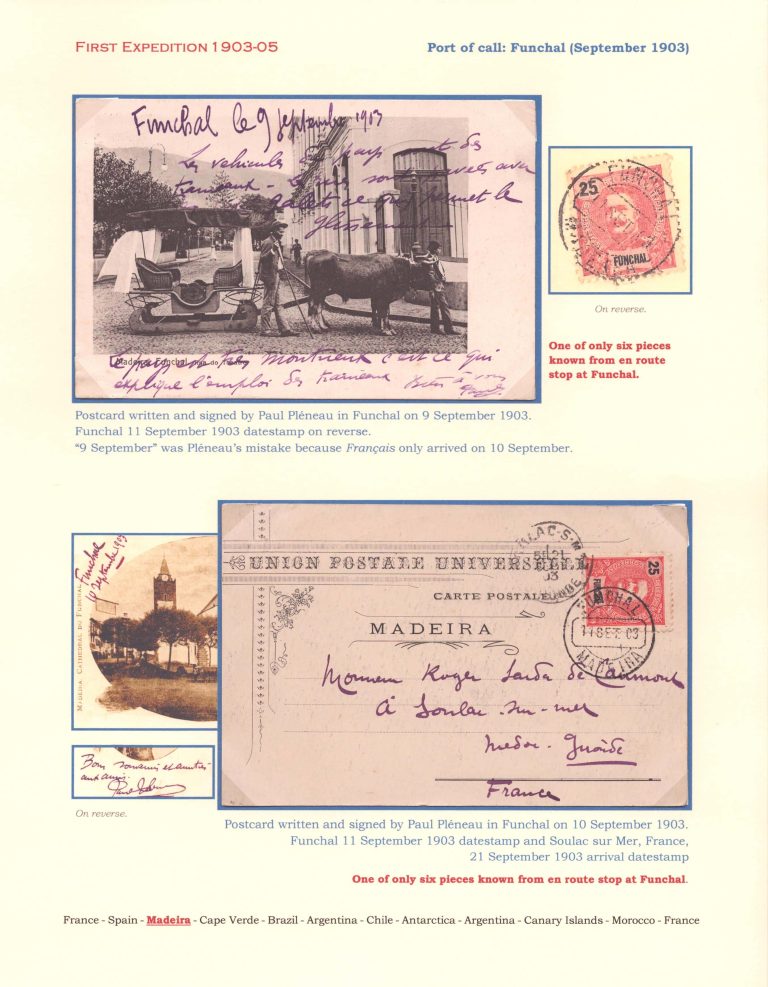 FIRST EXPEDITION 1903-05
Port of call: Funchal (September 1903)
Funchal le 9 septembre 1903
Les vehicules du pays sont des
traineaux - Le
galets ce qui permet le
glissement
Madeira Funchal
le pays est très montueux c'est ce qui
explique l'emploi des traineaux
25
FUNCHAL
On reverse.
One of only six pieces
known from en route
stop at Funchal.
Postcard written and signed by Paul Pléneau in Funchal on 9 September 1903.
Funchal 11 September 1903 datestamp on reverse.
“9 September” was Pléneau’s mistake because Français only arrived on 10 September.
Funchal
10 septembre 1903
MADEIRA CATHEDRAL DU FUNCHAL
Bons souvenirs et amitiés
aux amis.
On reverse.
UNION POSTALE UNIVERSELLE
CARTE POSTALE
MADEIRA
25
FUNCHAL
11 SEP 03
MADEIRA
Monsieur Roger Sarda de Caumont
à Soulac-sur-mer
Medoc - Gironde
France
Postcard written and signed by Paul Pléneau in Funchal on 10 September 1903.
Funchal 11 September 1903 datestamp and Soulac sur Mer, France,
21 September 1903 arrival datestamp
One of only six pieces known from en route stop at Funchal.
France - Spain - Madeira - Cape Verde - Brazil - Argentina - Chile - Antarctica - Argentina - Canary Islands - Morocco - France